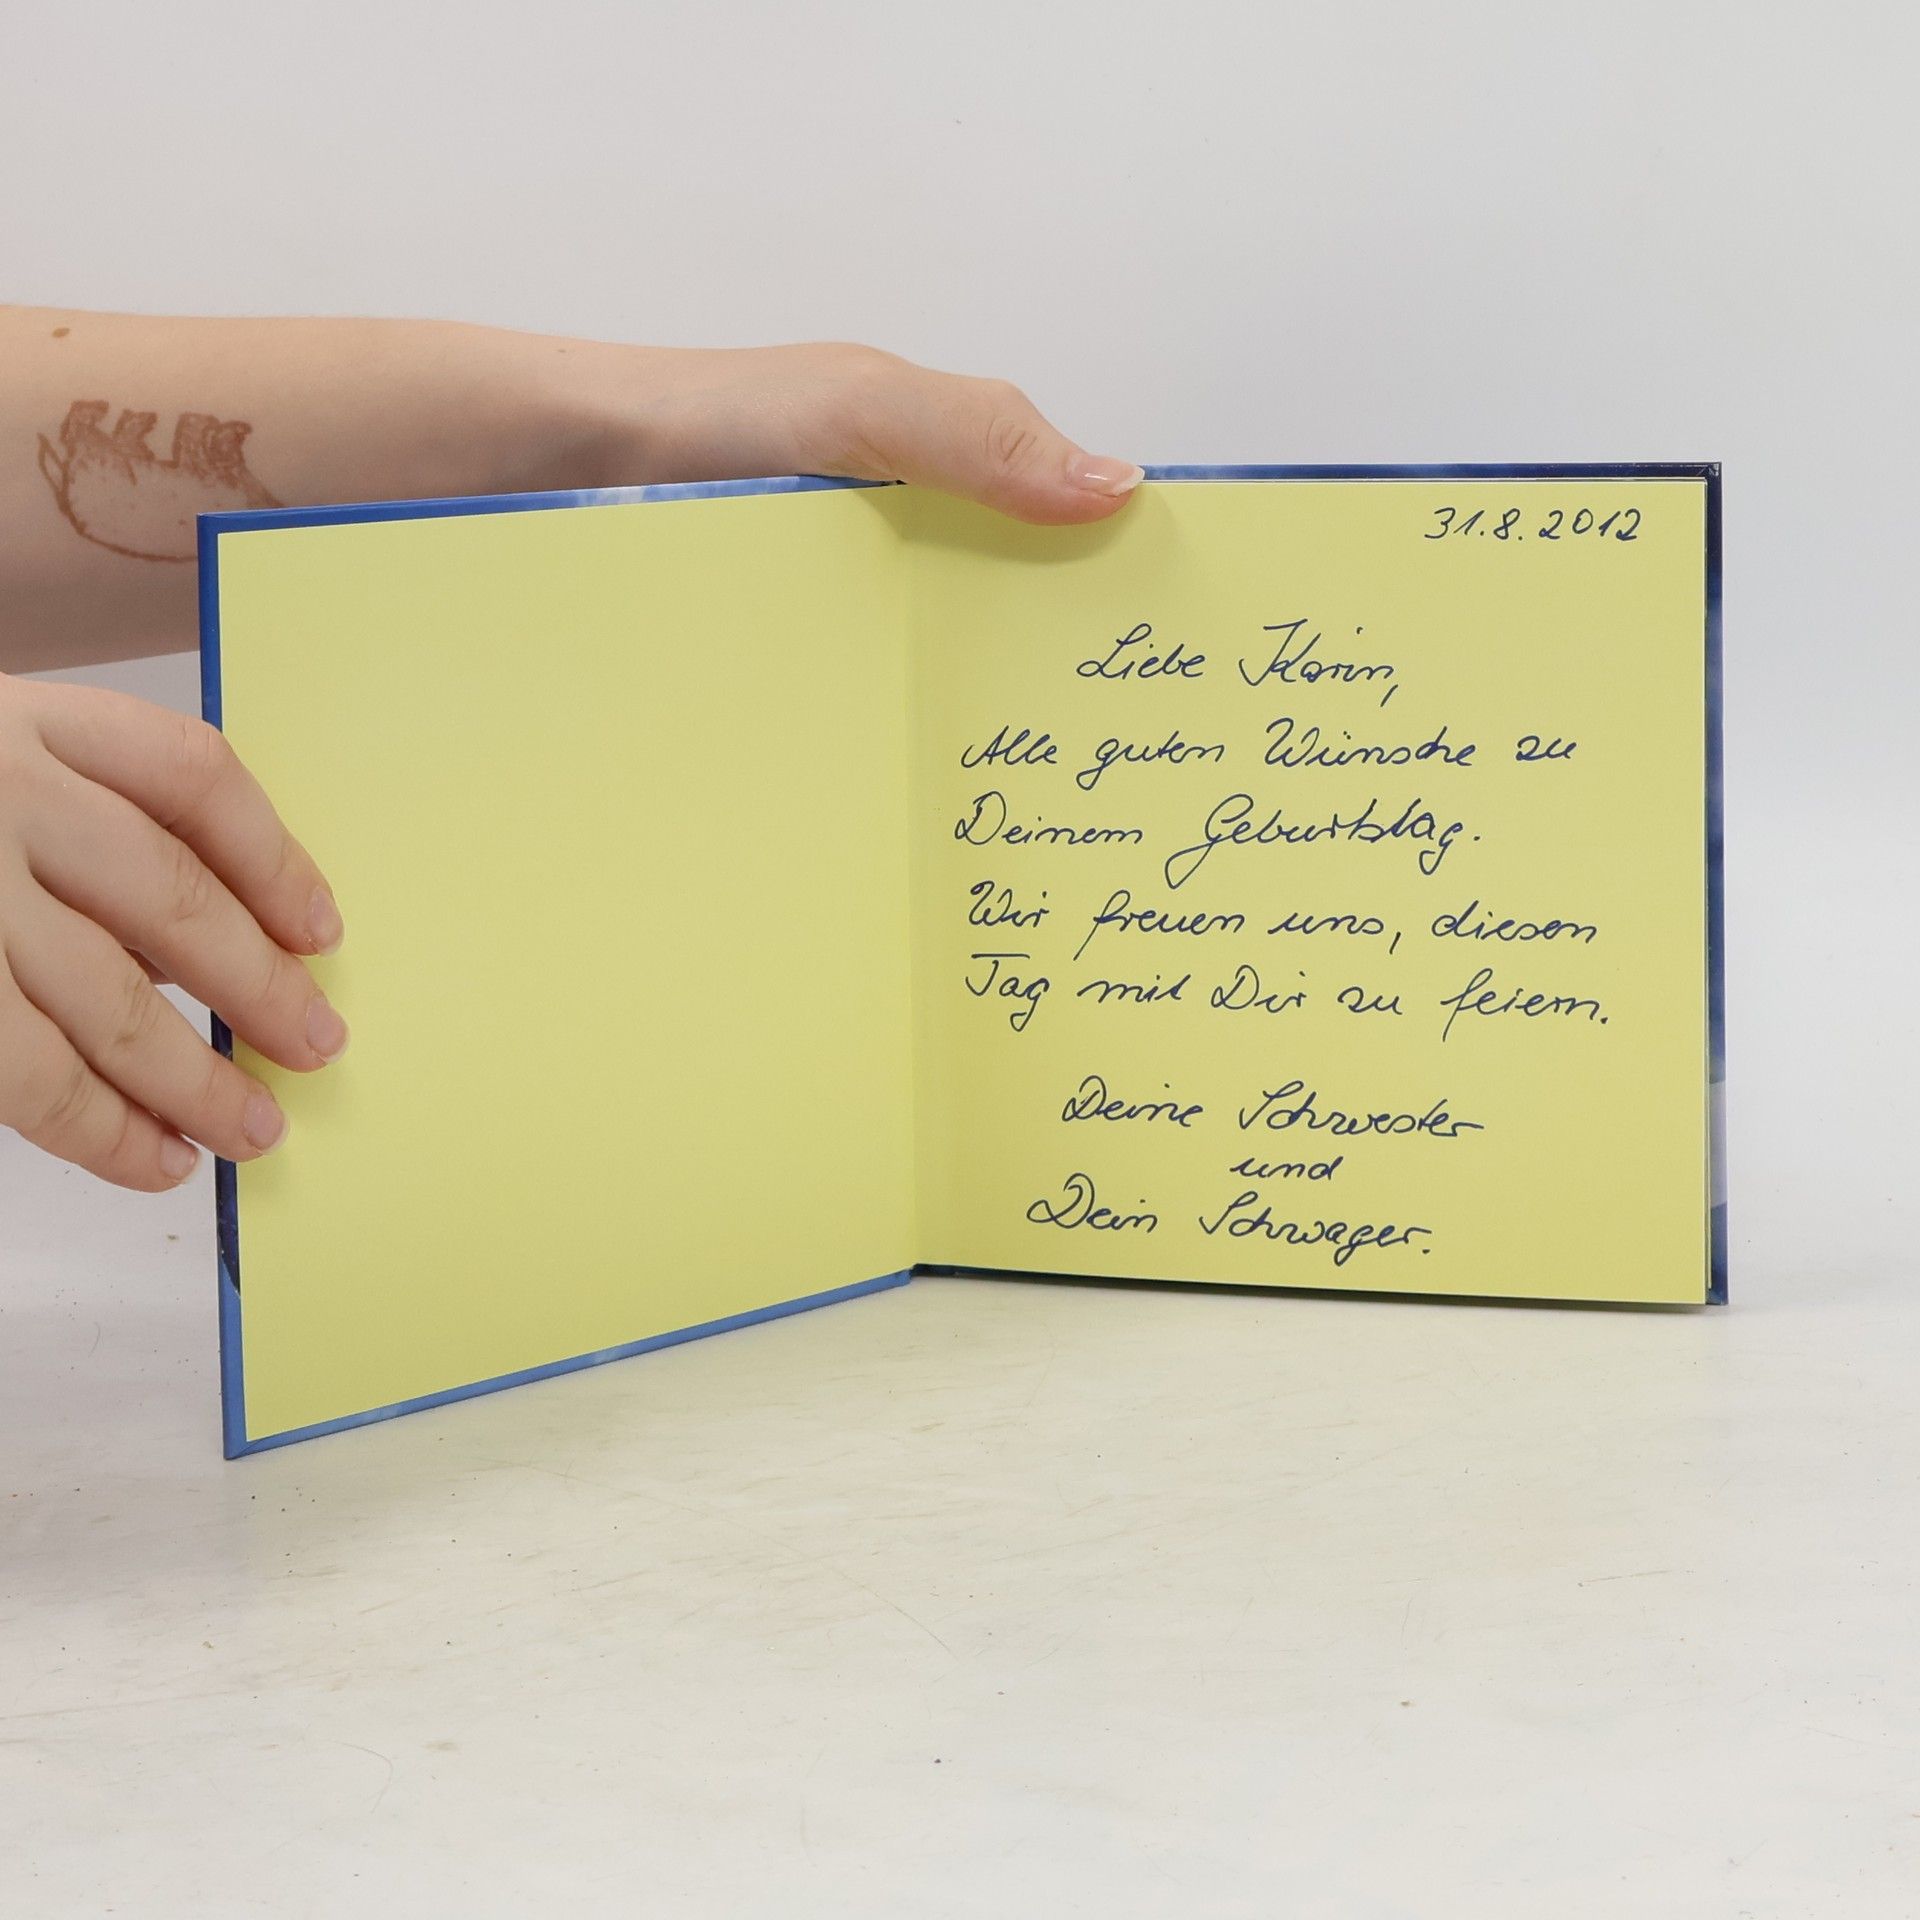 31.8.2012
Liebe Karin,
Alle guten Wünsche zu
Deinem Geburtstag.
Wir freuen uns, diesen
Tag mit Dir zu feiern.
Deine Schwester
und
Dein Schwager.